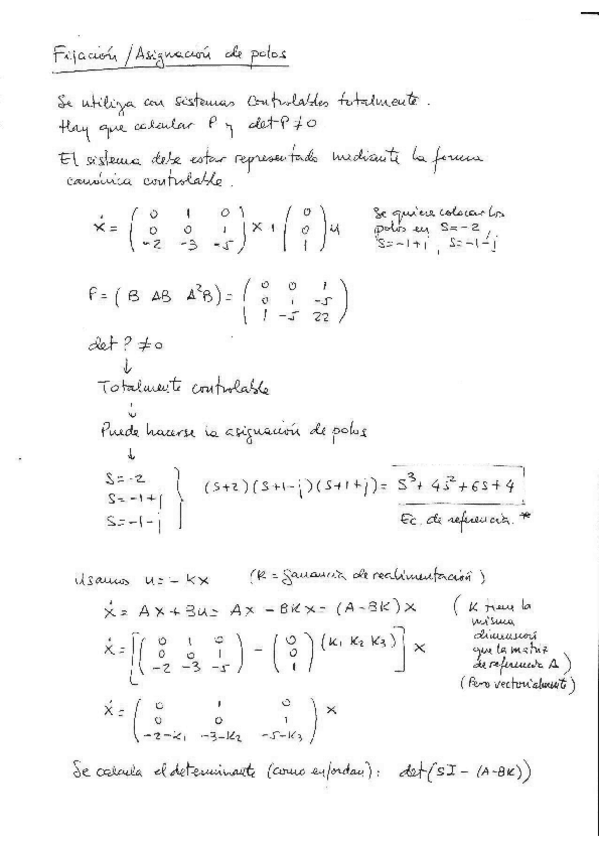 Fijación / Asignación de polos
Se utiliza con sistemas controlables totalmente.
Hay que calcular P y det P ≠ 0
El sistema debe estar representado mediante la forma
canónica controlable.
ẋ = ( 0 1 0 ; 0 0 1 ; -2 -3 -5 ) x + ( 0 ; 0 ; 1 ) u
Se quiere colocar los
polos en S=-2,
S=-1+j, S=-1-j
P = ( B AB A²B ) = ( 0 0 1 ; 0 1 -5 ; 1 -5 22 )
det P ≠ 0
↓
Totalmente controlable
↓
Puede hacerse la asignación de polos
↓
S=-2
S=-1+j
S=-1-j
} (S+2)(S+1-j)(S+1+j) = S³ + 4S² + 6S + 4
Ec. de referencia. *
Usamos u = -Kx (K = Ganancia de realimentación)
ẋ = Ax + Bu = Ax - BKx = (A-BK)x
(K tiene la
misma
dimensión
que la matriz
de referencia A)
(Pero vectorialmente)
ẋ = [ ( 0 1 0 ; 0 0 1 ; -2 -3 -5 ) - ( 0 ; 0 ; 1 ) (K₁ K₂ K₃) ] x
ẋ = ( 0 1 0 ; 0 0 1 ; -2-K₁ -3-K₂ -5-K₃ ) x
Se calcula el determinante (como en Jordan): det(SI - (A-BK))